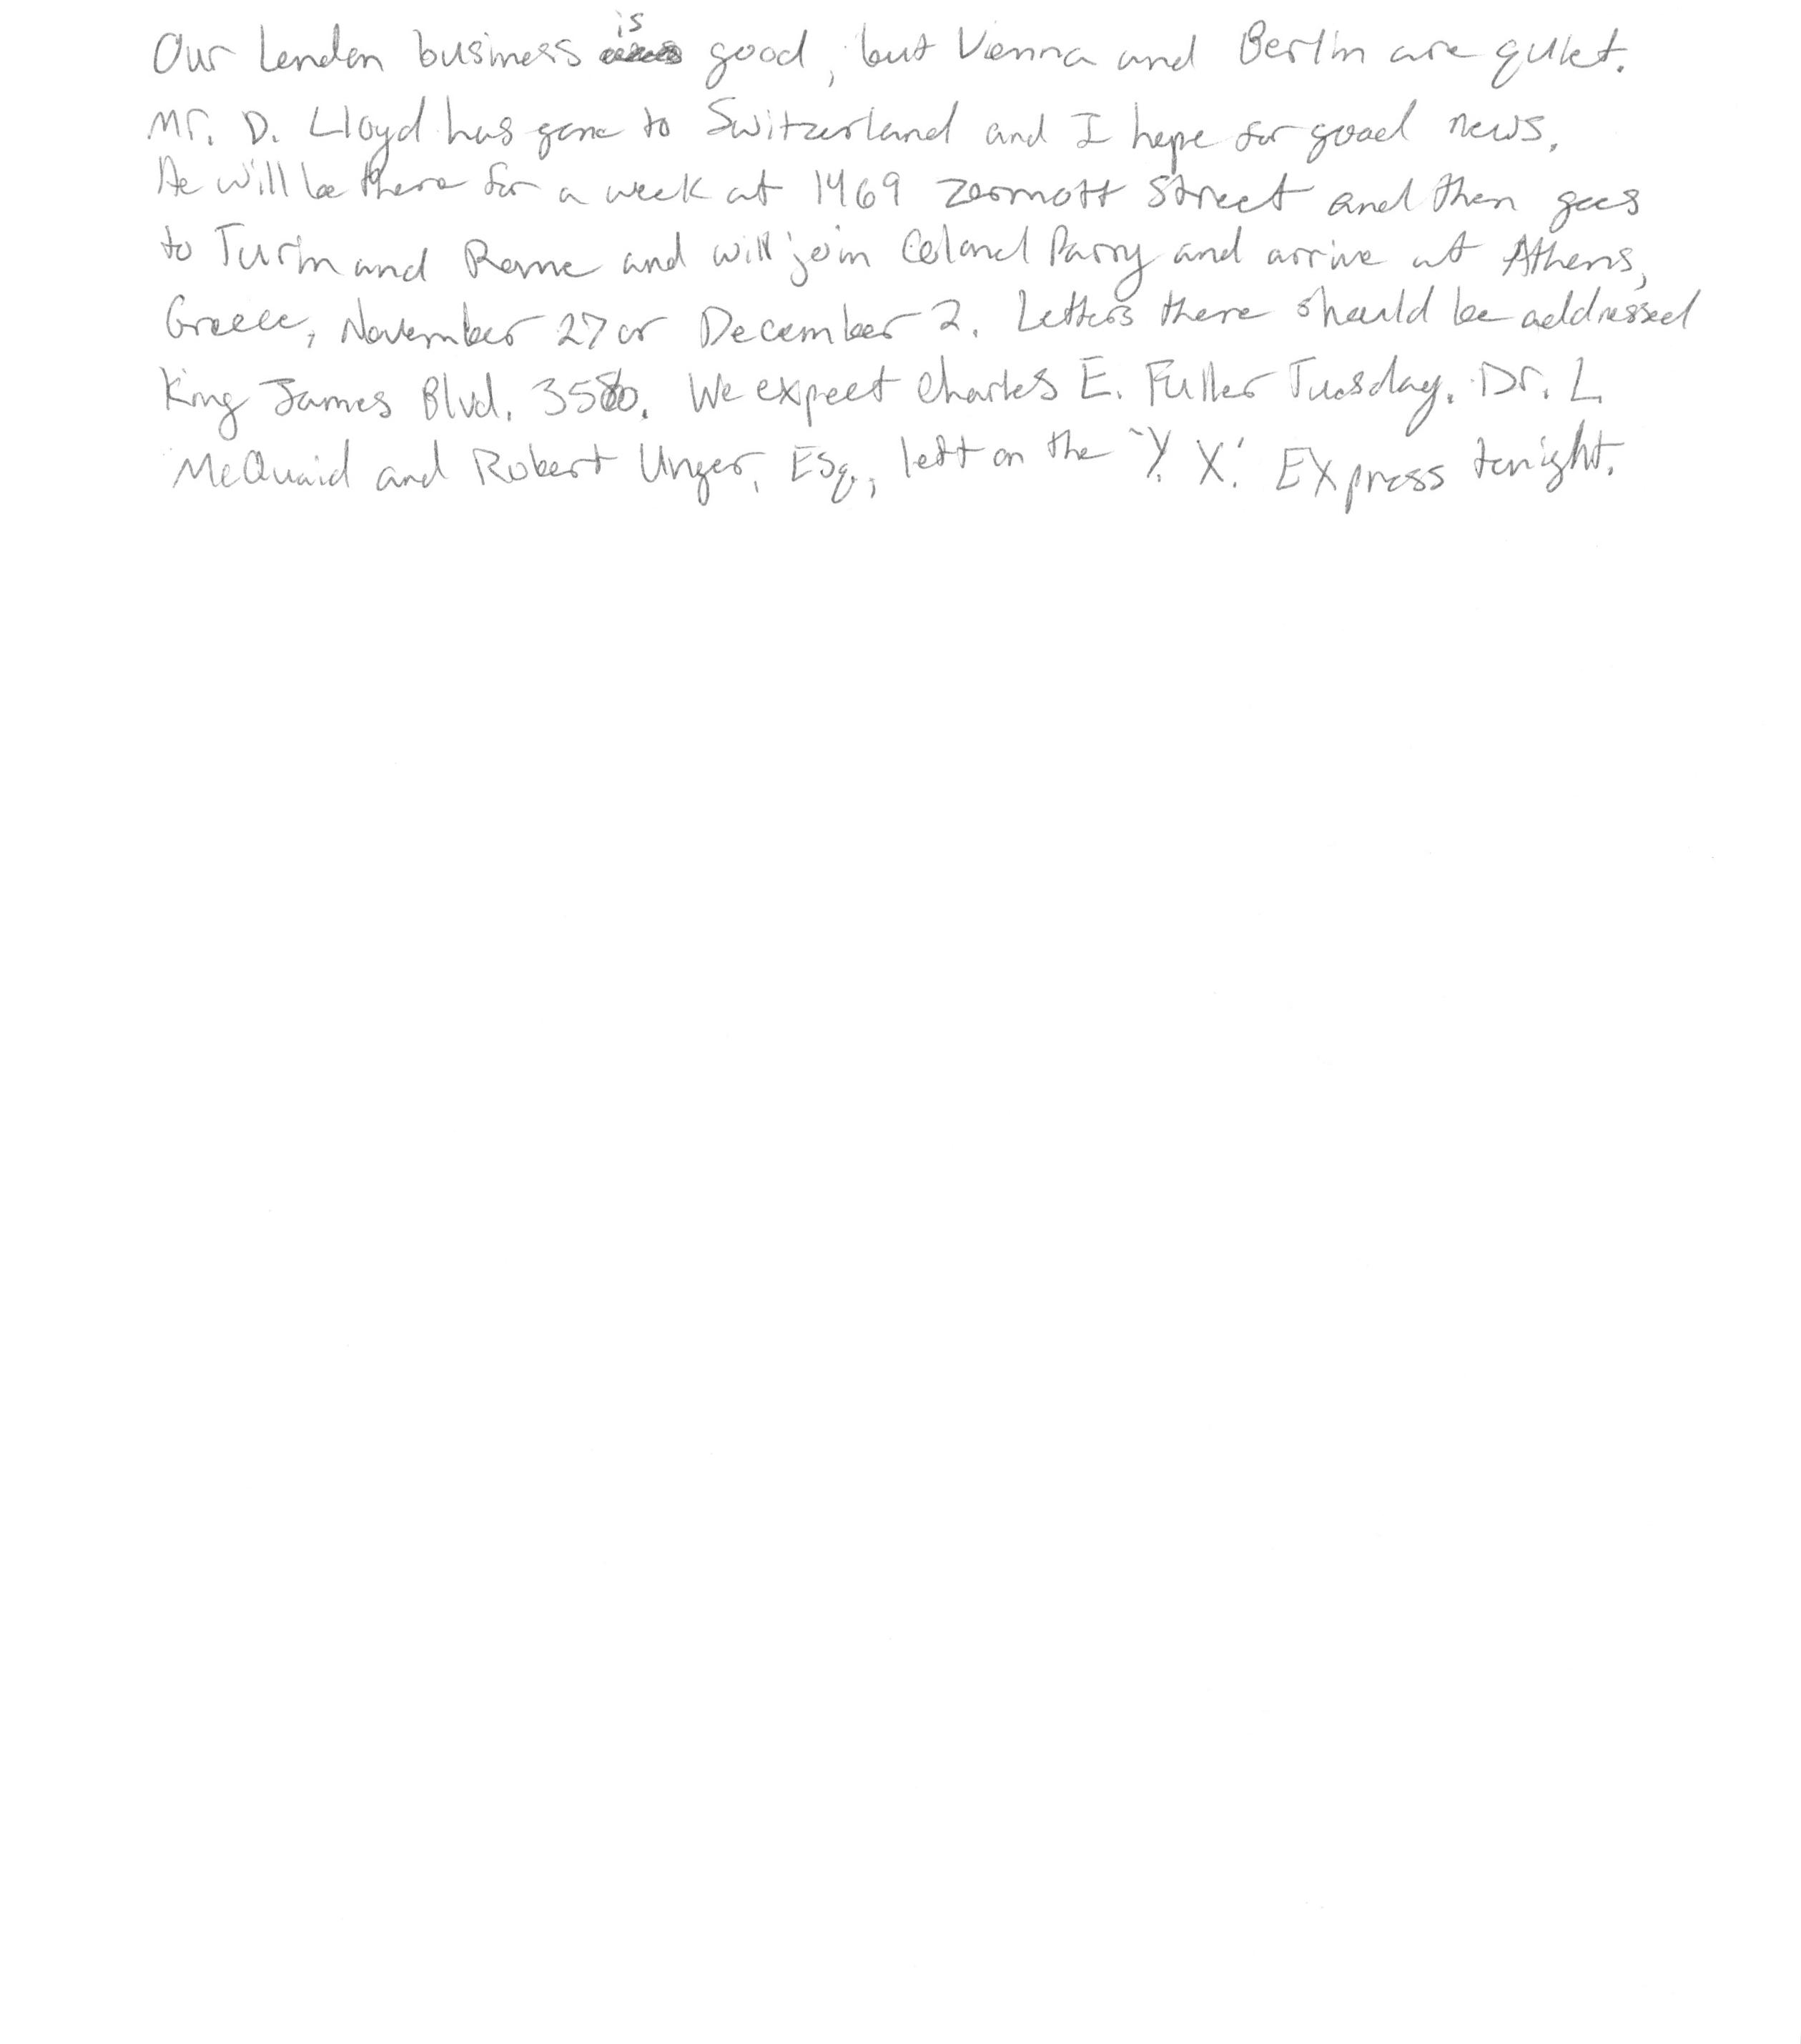 Our London business is good, but Vienna and Berlin are quiet.
Mr. D. Lloyd has gone to Switzerland and I hope for good news.
He will be there for a week at 1469 Zermott Street and then goes
to Turin and Rome and will join Colonel Parry and arrive at Athens,
Greece, November 27 or December 2. Letters there should be addressed
King James Blvd. 3580. We expect Charles E. Fuller Tuesday. Dr. L.
McQuaid and Robert Unger, Esq., left on the "Y. X." Express tonight.